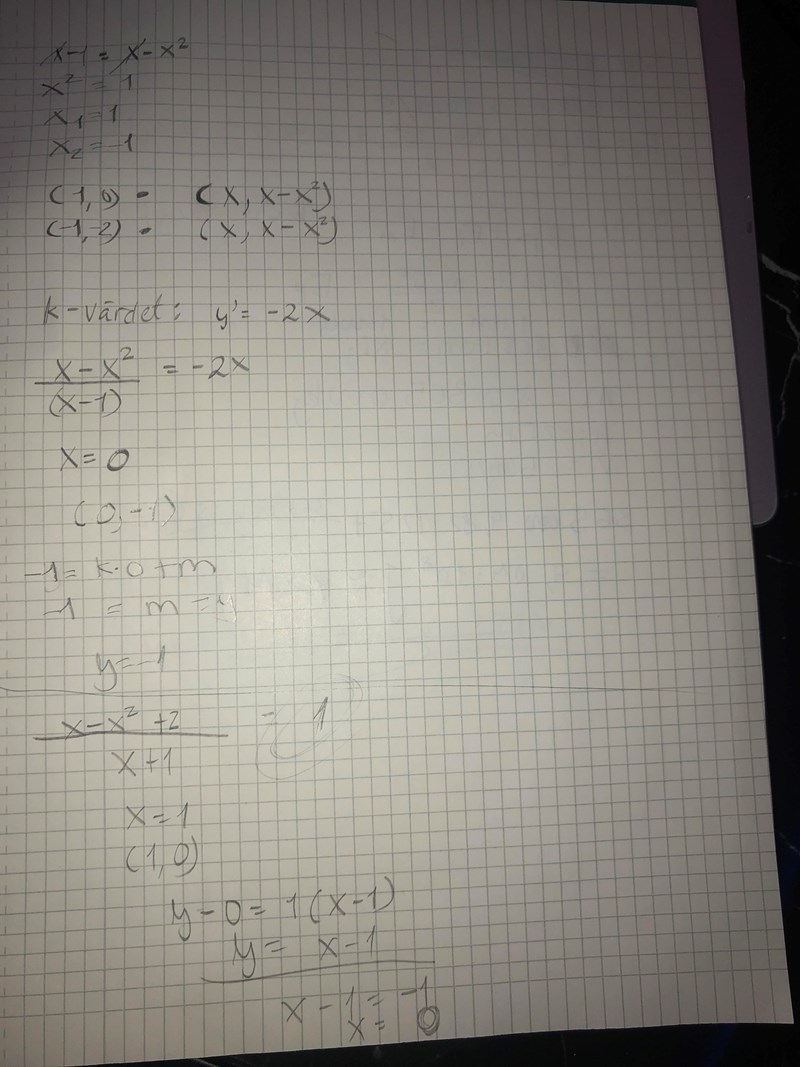 x-1 = x-x²
x² = 1
x₁=1
x₂=-1
(1,0) - (x, x-x²)
(-1,-2) - (x, x-x²)
k-värdet: y'= -2x
x-x² / (x-1) = -2x
x= 0
(0,-1)
-1= k·0+m
-1 = m =y
y=-1
x-x²+2 / x+1 = 1
x=1
(1,0)
y-0= 1(x-1)
y= x-1
x-1= -1
x= 0